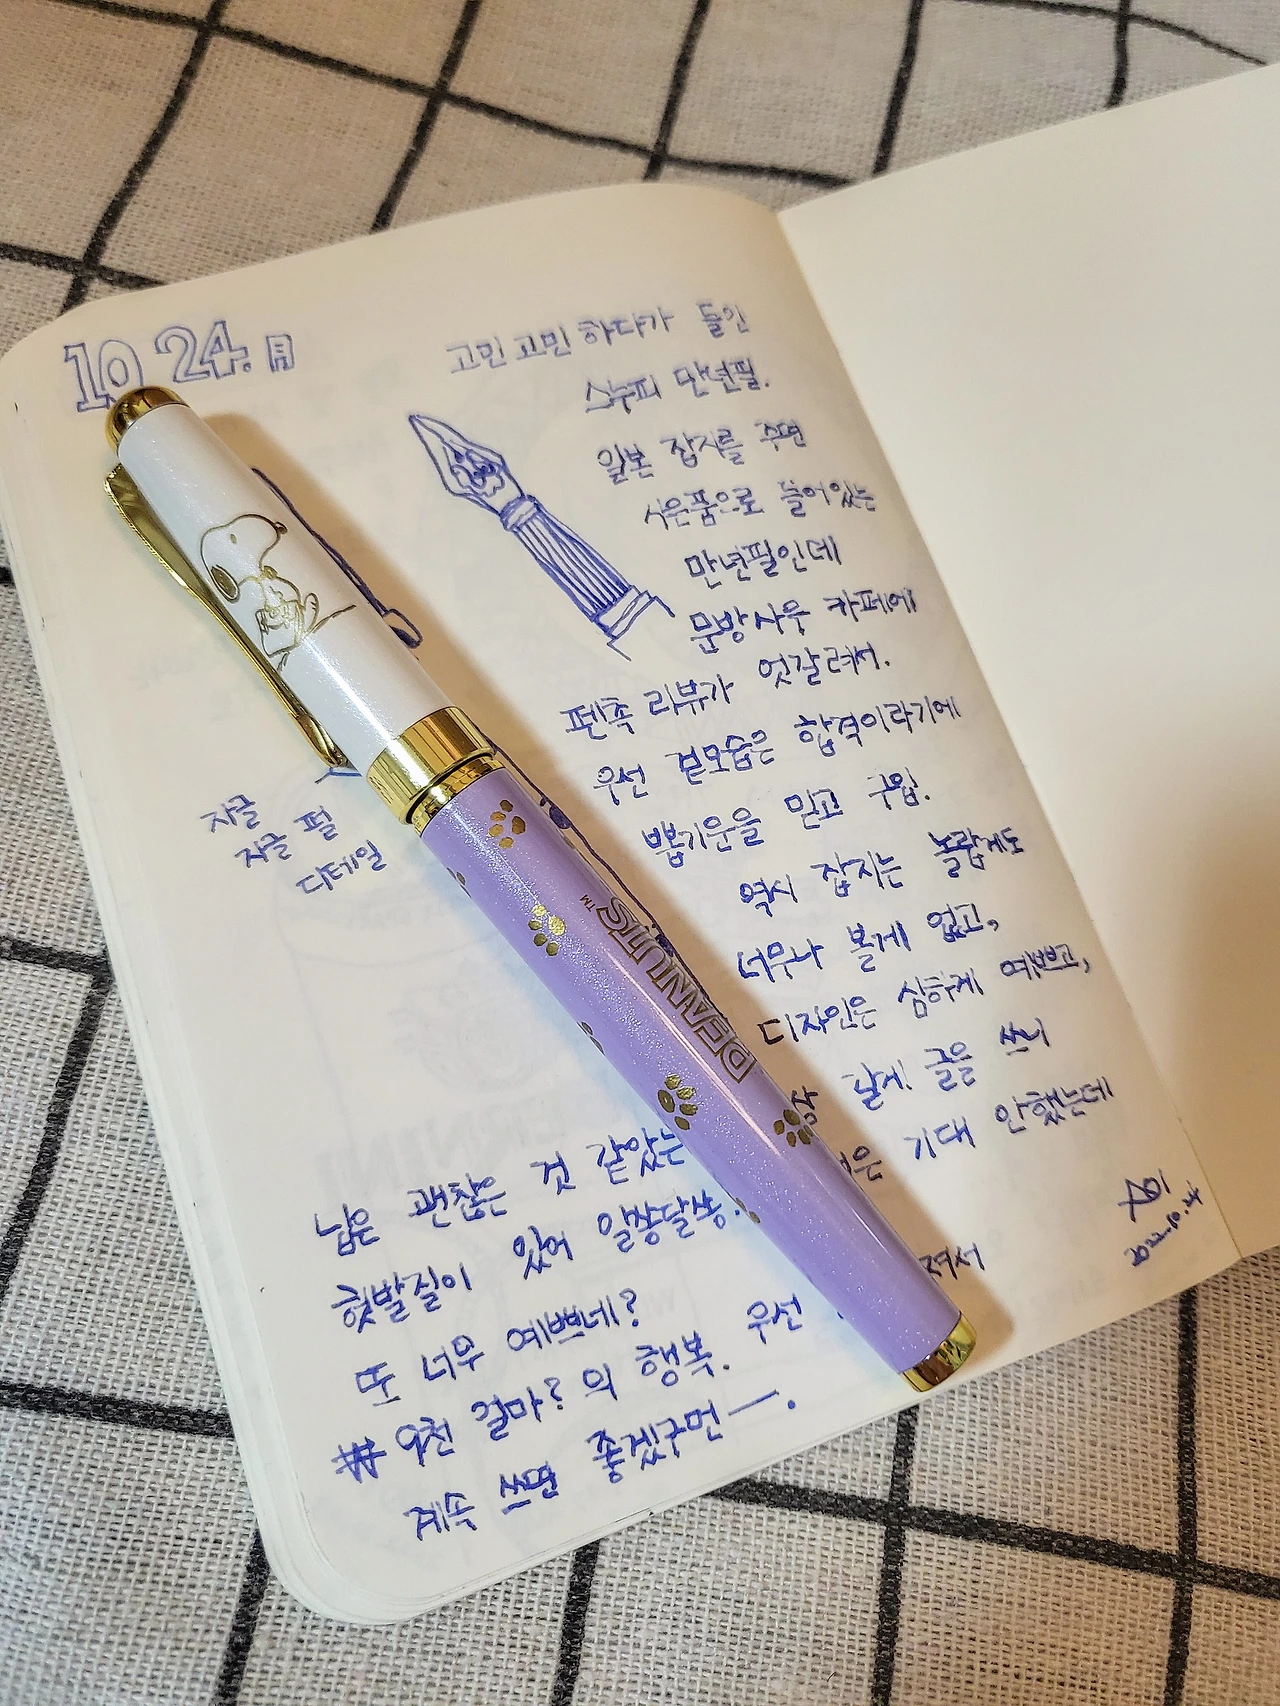 10 24. 月
고민 고민 하다가 들인
스누피 만년필.
일본 잡지를 주면
사은품으로 들어있는
만년필인데
문방사우 카페에
펜촉 리뷰가 엇갈려서.
우선 겉모습은 합격이라기에
뽑기운을 믿고 구입.
역시 잡지는 놀랍게도
너무나 볼게 없고,
디자인은 심하게 예쁘고,
글을 쓰니
기대 안했는데
져서
자글
자글 펄
디테일
PEANUTS™
닙은 괜찮은 것 같았는
헛발질이 있어 알쏭달쏭.
또 너무 예쁘네?
₩ 9천 얼마?의 행복. 우선
계속 쓰면 좋겠구먼一.